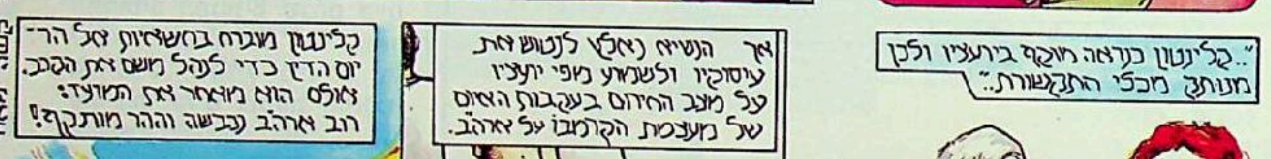 "..קלינטון כנראה מוקף ביועציו ולכן
מנותק מכלי התקשורת.."
אך הנשיא נאלץ לנטוש את
עיסוקיו ולשמוע מפי יועציו
על מצב החירום בעקבות האיום
של מעצמת הקרמבו על ארה"ב.
קלינטון מוברח בחשאיות אל הר-
יום הדין כדי לנהל משם את הקרב.
אולם הוא מאחר את המועד:
רוב ארה"ב נכבשה וההר מותקף!